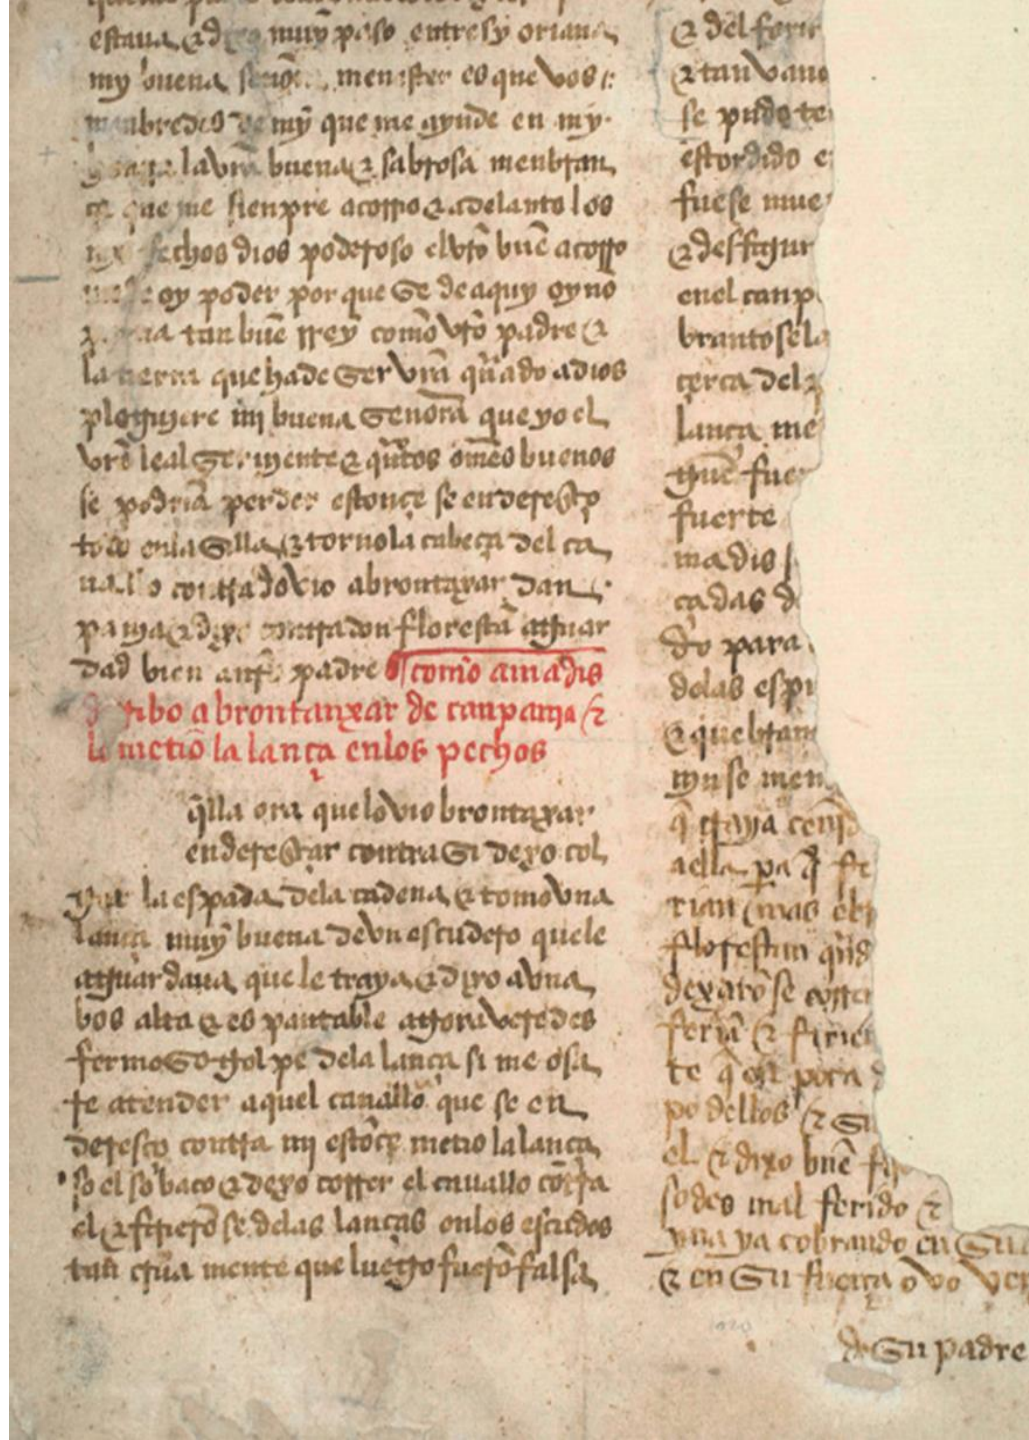 estaua & dixo muy paso entresy oriana
my buena señor menester es que vos
menbredes de my que me ayude en my
la vrã buena & sabrosa menbran
ça que me sienpre acorrio & adelanto los
mys fechos dios poderoso el vrõ buẽ acorro
oy poder por que se de aquy oy no
tan buẽ rrey comõ vrõ padre &
la tierra que ha de ser vrã qũado a dios
ploguyere mi buena Senorã que yo el
vrõ leal Seruyente & qũtos omẽs buenos
se podriã perder estonçe se enderesço
todo en la Silla & torno la cabeça del ca
uallo contra do vio a brontaxar dan
panja & dixo contra don florestã aguar
dad bien a nrõ padre comõ amadis
derribo a brontanxar de canpanja &
le metiõ la lança en los pechos
q̃lla ora que lo vio brontaxar
enderesçar contra Si dexo col
gar la espada dela cadena & tomo vna
lança muy buena de vn escudero quele
aguardaua que le traya & dixo a vna
bos alta & espantable agora veredes
fermoso golpe dela lança si me osa
re atender aquel cauallõ que se en
deresço contra mi estõçe metio la lança
so el sobaco & dexo correr el cauallo cõtra
el & firierõ se delas lanças en los escudos
tan crũa mente que luego fuerõ falsa
& del ferir
& tan vano
se pudo te
estordido e
fuese mue
& desfigur
enel canp
branto se la
çerca del
lança me
guẽ fue
fuerte
madis
cadas d
do para
delas espa
& quebran
my se men
q̃ traya çeni
a ella pa q̃ fe
rian mas el
florestan qũd
dexarõ se correr
feriã & firie
te q̃ en poca
po dellos & su
el & dixo buẽ
sodes mal ferido &
yua ya cobrando en Su
& en Su fuerça ovo ver
de Su padre